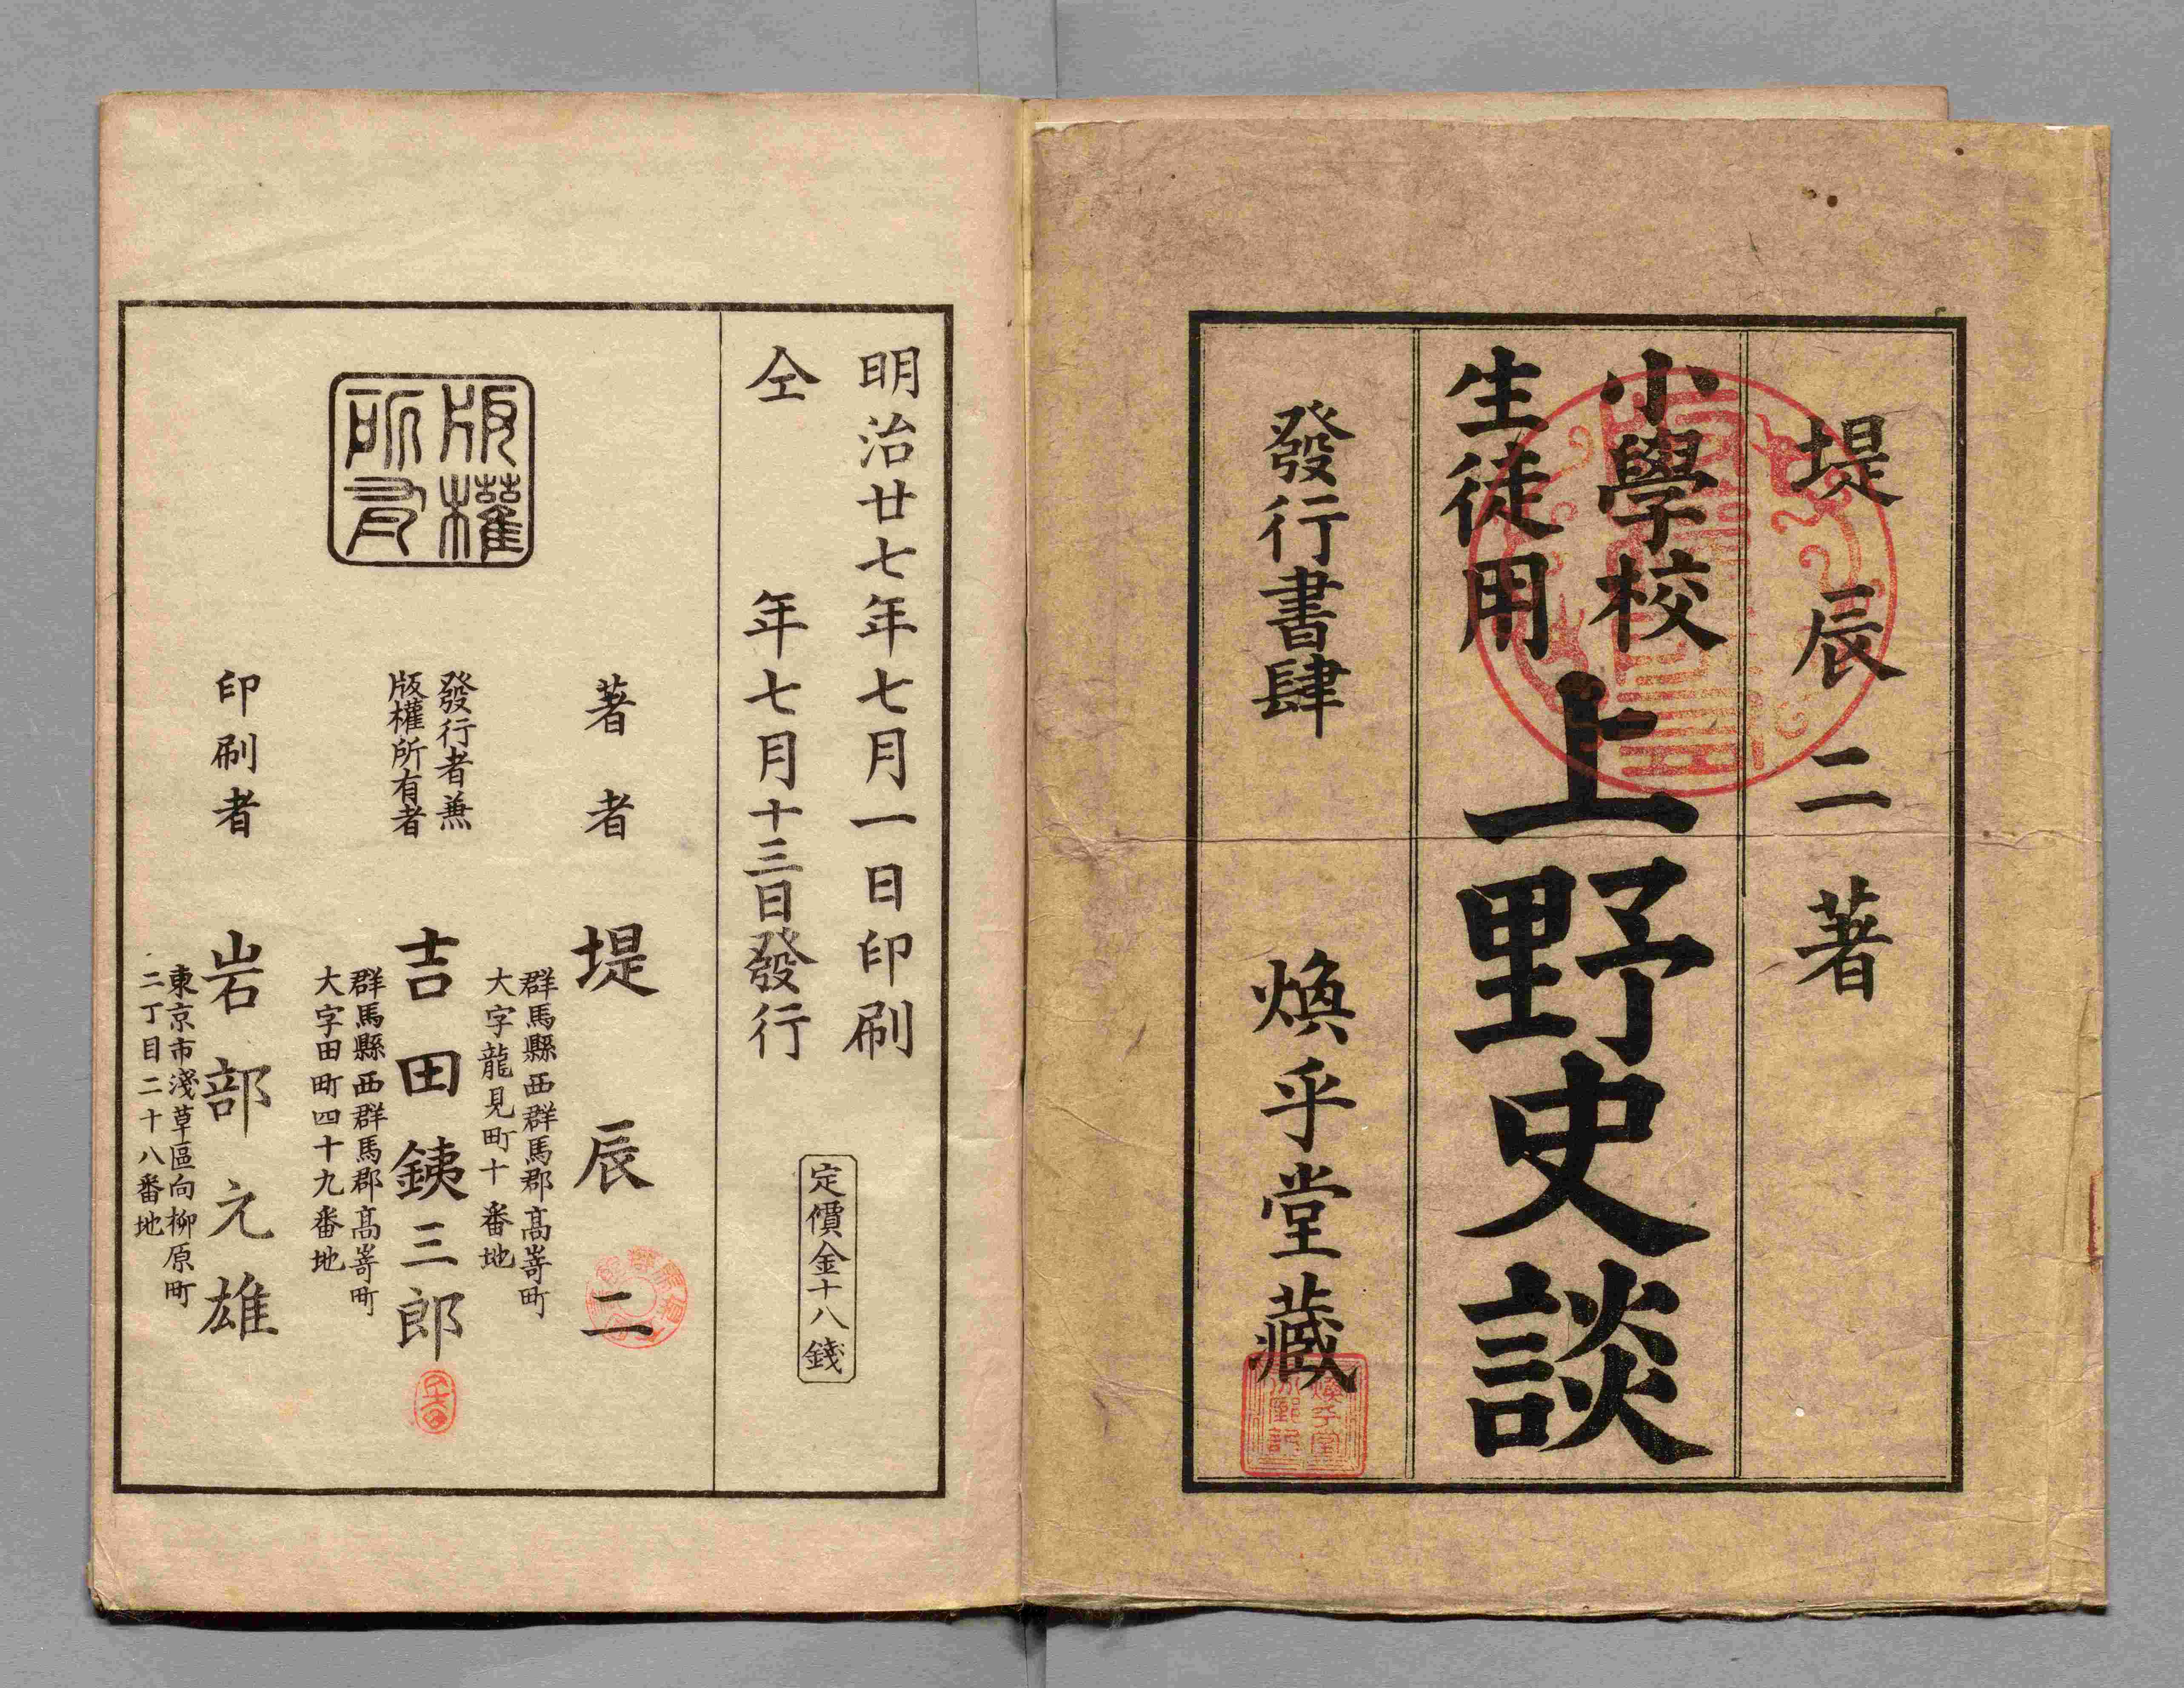 堤辰二著
小學校
生徒用
上野史談
發行書肆 煥乎堂藏
明治廿七年七月一日印刷
仝 年七月十三日發行
定價金十八錢
版權
所有
著者 堤辰二
群馬縣西群馬郡高嵜町
大字龍見町十番地
發行者兼
版權所有者
吉田銕三郎
群馬縣西群馬郡高嵜町
大字田町四十九番地
印刷者 岩部元雄
東京市淺草區向柳原町
二丁目二十八番地